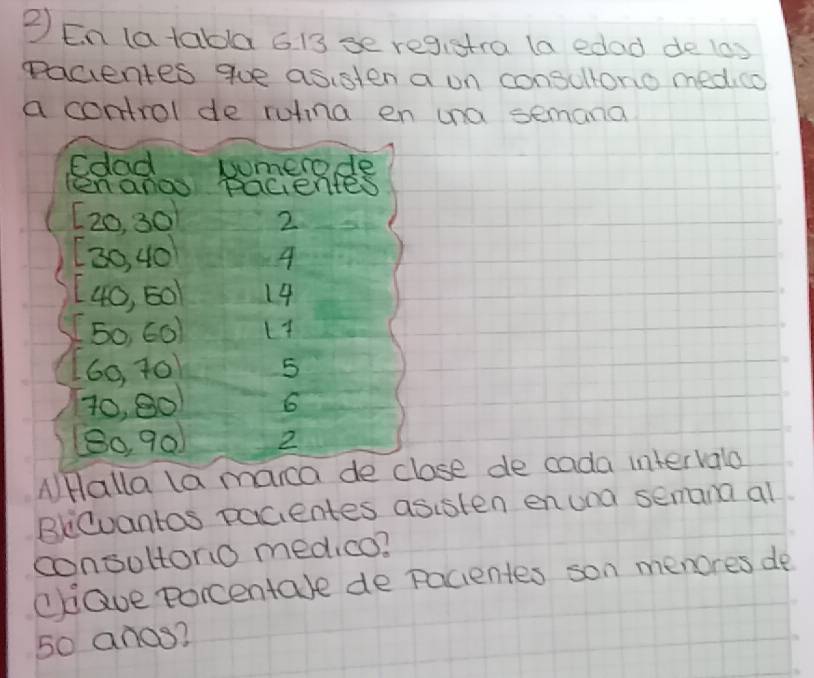 2) En la tabla 6.13 se registra la edad de los
pacientes que asisten a un consultorio medico
a control de rutina en una semana
Edad numero de
en años Pacientes
[20, 30) 2
[30, 40) 4
[40, 50) 14
[50, 60)
[60, 70) 5
[70, 80) 6
[80, 90) 2
A) Halla la marca de clase de cada intervalo
B) ¿Cuantos pacientes asisten en una semana al
consultorio medico?
C) ¿Que porcentaje de pacientes son menores de
50 años?